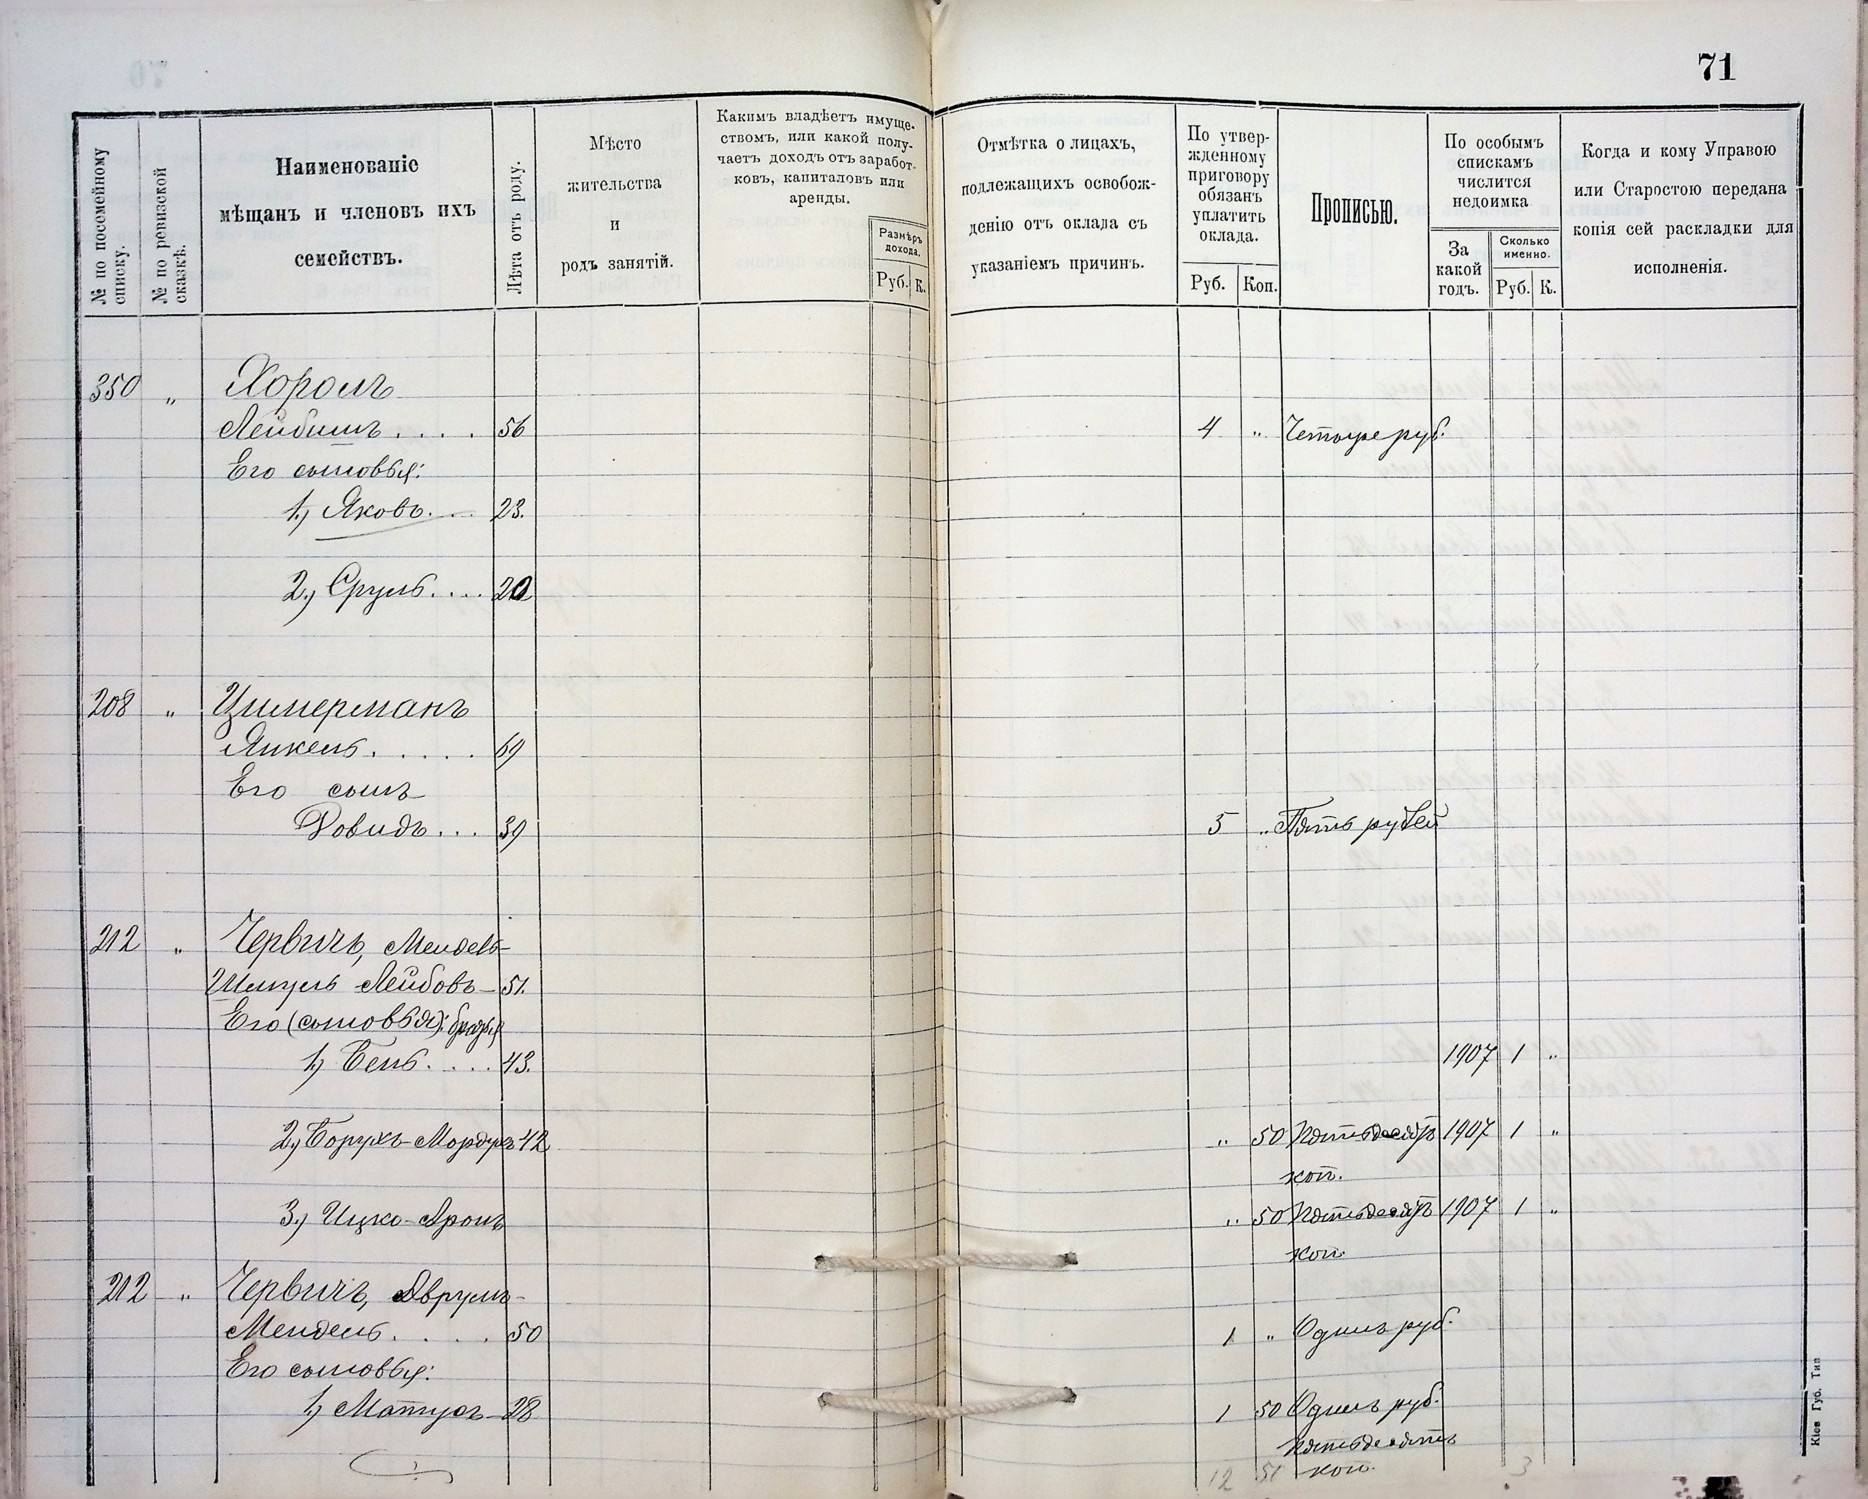 71
№ по посемейному списку.
№ по ревизской сказкѣ.
Наименованіе
мѣщанъ и членовъ ихъ
семействъ.
Лѣта отъ роду.
Мѣсто
жительства
и
родъ занятій.
Какимъ владѣетъ имуще-
ствомъ, или какой полу-
чаетъ доходъ отъ заработ-
ковъ, капиталовъ или
аренды.
Размѣръ
дохода.
Руб. К.
Отмѣтка о лицахъ,
подлежащихъ освобож-
денію отъ оклала съ
указаніемъ причинъ.
По утвер-
жденному
приговору
обязанъ
уплатить
оклала.
Руб. Коп.
Прописью.
По особымъ
спискамъ
числится
недоимка
За
какой
годъ.
Сколько
именно.
Руб. К.
Когда и кому Управою
или Старостою передана
копія сей раскладки для
исполненія.
350 „ Хоромъ
Лейбишъ . . . . 56 4 „ Четыре руб.
Его сыновья:
1.) Яковъ. . . 23.
2.) Сруль. . . . 20
208 „ Цимерманъ
Янкель. . . . . 69
Его сынъ
Довидъ . . . 39 5 „ Пять рублей
212 „ Червичъ, Мендель-
Шмуль Лейбовъ 51.
Его (сыновья): братья
1.) Бень. . . . 43. 1907 1 „
2.) Борухъ-Мордухъ 42 „ 50 Пятьдесятъ 1907 1 „
коп.
3.) Ицко-Аронъ „ 50 Пятьдесятъ 1907 1 „
коп.
212 „ Червичъ, Аврумъ-
Мендель. . . . . 50 1 „ Одинъ руб.
Его сыновья:
1.) Матусъ 28. 1 50 Одинъ руб.
пятьдесятъ
коп.
12 51 3
Кіев Губ. Тип